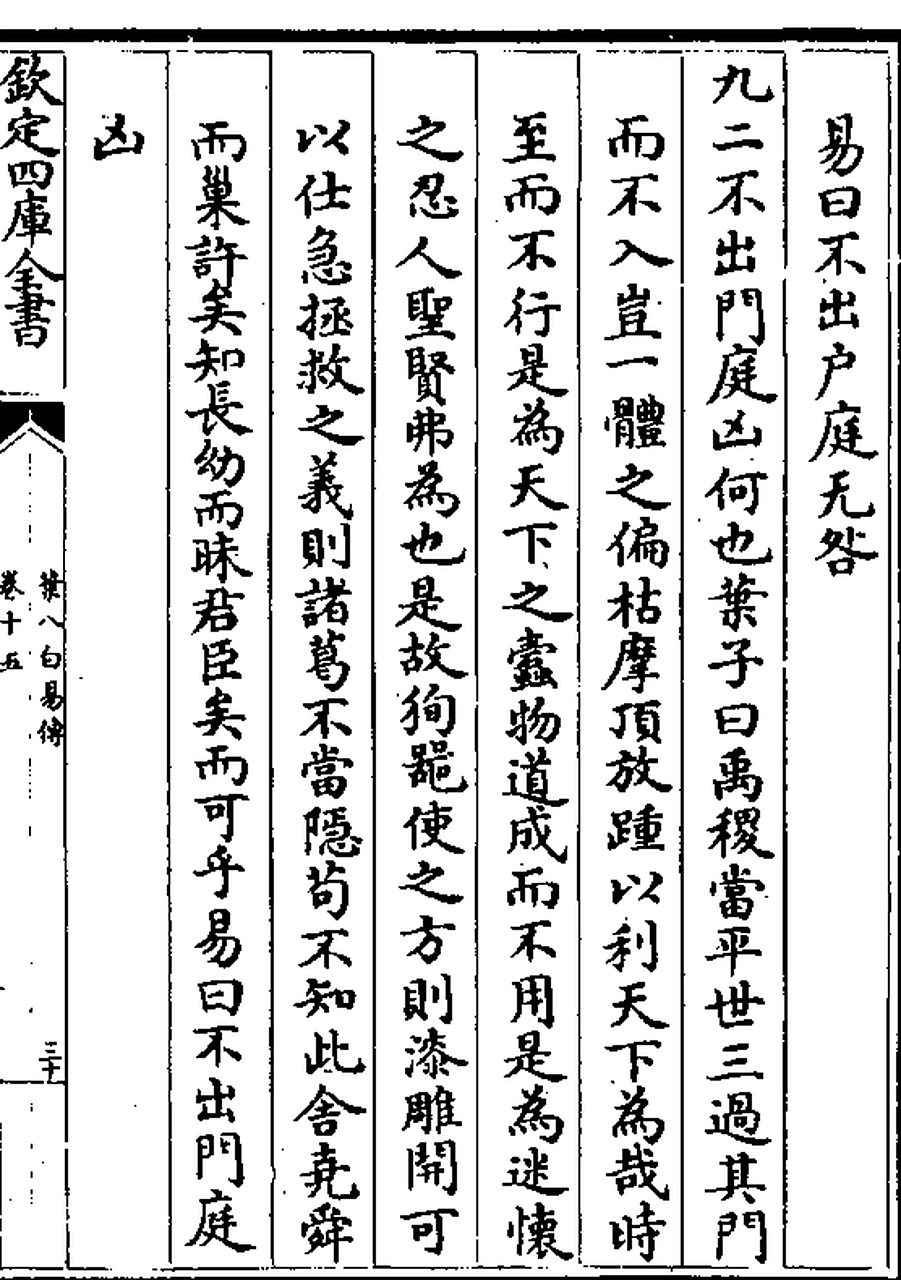 易曰不出户庭无咎
九二不出門庭凶何也葉子曰禹稷當平世三過其門
而不入豈一體之偏枯摩頂放踵以利天下為哉時
至而不行是為天下之蠹物道成而不用是為迷懷
之忍人聖賢弗為也是故狥噐使之方則漆雕開可
以仕急拯救之義則諸葛不當隠茍不知此舍堯舜
而巢許矣知長幼而昧君臣矣而可乎易曰不出門庭
凶
欽定四庫全書
葉八白易傳
卷十五
三十